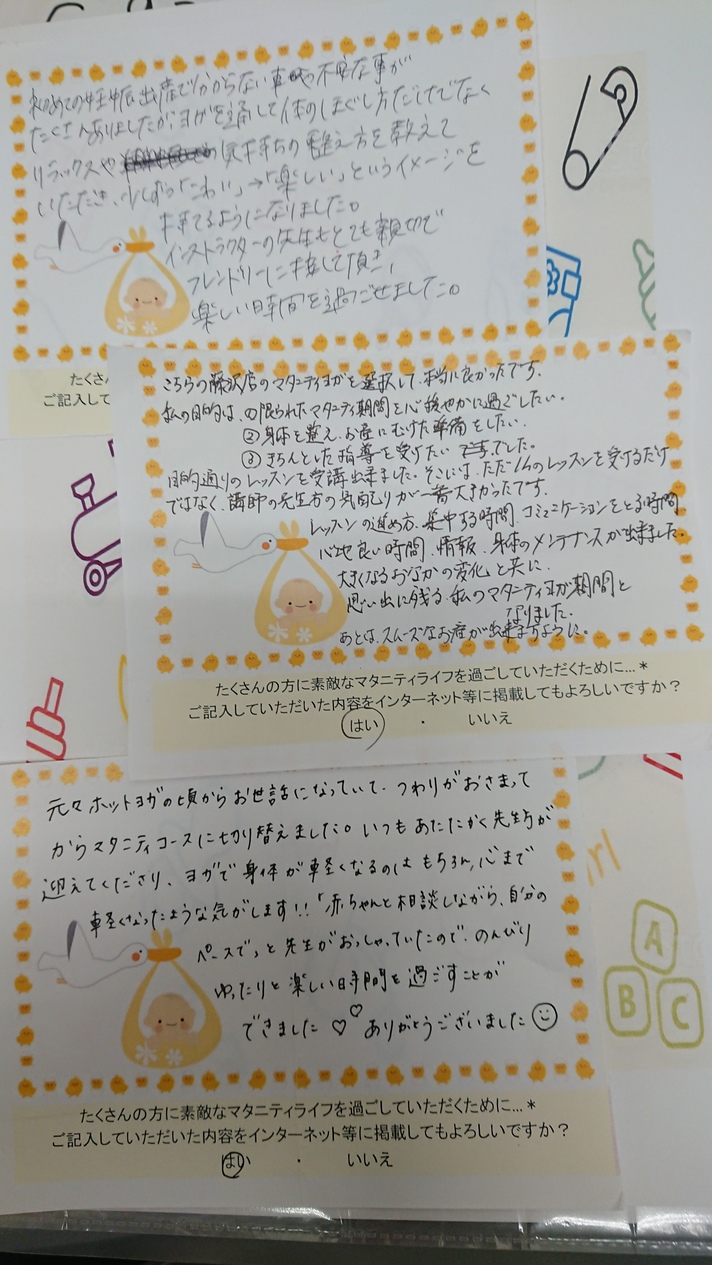 初めての妊娠、出産で分からない事や不安な事が
たくさんありましたが、ヨガを通して体のほぐし方だけでなく
リラックスや気持ちの整え方を教えて
いただき、少しずつ「こわい」→「楽しい」というイメージを
持てるようになりました。
インストラクターの先生もとても親切で
フレンドリーに接して頂き、
楽しい時間を過ごせました。
たくさん
ご記入して
こちらの藤沢店のマタニティヨガを選択して、本当に良かったです。
私の目的は、①限られたマタニティ期間を心穏やかに過ごしたい。
②身体を整え、お産にむけた準備をしたい。
③きちんとした指導を受けたい でした。
目的通りのレッスンを受講出来ました。そこには、ただ1人のレッスンを受けるだけ
ではなく、講師の先生方の気配りが一番大きかったです。
レッスンの進め方、集中する時間、コミュニケーションをとる時間
心地良い時間、情報、身体のメンテナンスが出来ました。
大きくなるおなかの変化と共に、
思い出に残る私のマタニティヨガ期間と
なりました。
あとは、スムーズなお産が出来ますように。
たくさんの方に素敵なマタニティライフを過ごしていただくために…*
ご記入していただいた内容をインターネット等に掲載してもよろしいですか?
はい ・ いいえ
元々ホットヨガの頃からお世話になっていて、つわりがおさまって
からマタニティコースに切り替えました。いつもあたたかく先生方が
迎えてくださり、ヨガで身体が軽くなるのはもちろん、心まで
軽くなったような気がします!!「赤ちゃんと相談しながら、自分の
ペースで」と先生がおっしゃっていたので、のんびり
ゆったりと楽しい時間を過ごすことが
できました♡♡ありがとうございました☺
たくさんの方に素敵なマタニティライフを過ごしていただくために…*
ご記入していただいた内容をインターネット等に掲載してもよろしいですか?
はい ・ いいえ
A
B
C